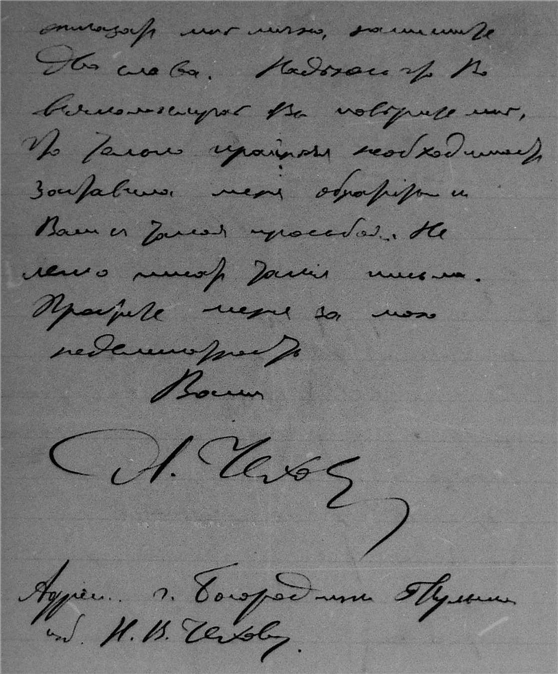 отказать мне можно, напишите
два слова. Надеюсь что В
Вы поверите мне,
что только крайняя необходимость
заставила меня обратиться к
Вам с такой просьбой. Не
легко писать такие письма.
Простите меня за мою
неделикатность
Ваш
Н. Чеховъ
Адресъ. г. Богородицкъ Тульской
губ. Н. В. Чехову.